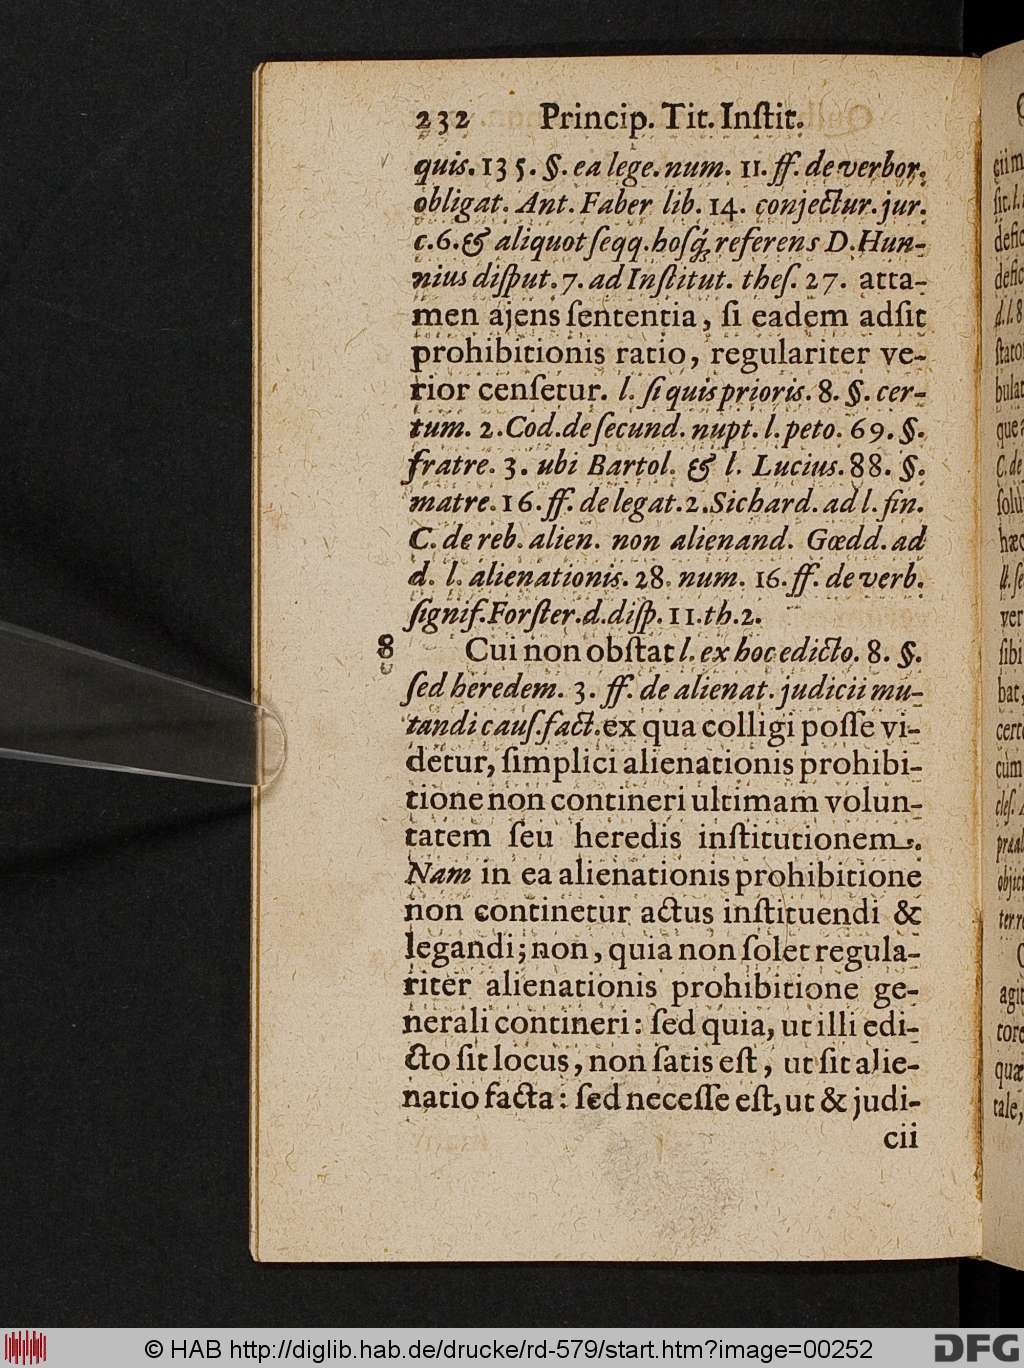 232 Princip. Tit. Inſtit.
quis. 135. §. ea lege. num. 11. ff. de verbor.
obligat. Ant. Faber lib. 14. conjectur. jur.
c. 6. & aliquot ſeqq. hoſq́; referens D. Hun-
nius diſput. 7. ad Inſtitut. theſ. 27. atta-
men ajens ſententia, ſi eadem adſit
prohibitionis ratio, regulariter ve-
rior cenſetur. l. ſi quis prioris. 8. §. cer-
tum. 2. Cod. de ſecund. nupt. l. peto. 69. §.
fratre. 3. ubi Bartol. & l. Lucius. 88. §.
matre. 16. ff. de legat. 2. Sichard. ad l. fin.
C. de reb. alien. non alienand. Gœdd. ad
d. l. alienationis. 28. num. 16. ff. de verb.
ſignif. Forſter. d. diſp. 11. th. 2.
8 Cui non obſtat l. ex hoc edicto. 8. §.
ſed heredem. 3. ff. de alienat. judicii mu-
tandi cauſ. fact. ex qua colligi poſſe vi-
detur, ſimplici alienationis prohibi-
tione non contineri ultimam volun-
tatem ſeu heredis inſtitutionem.
Nam in ea alienationis prohibitione
non continetur actus inſtituendi &
legandi; non, quia non ſolet regula-
riter alienationis prohibitione ge-
nerali contineri: ſed quia, ut illi edi-
cto ſit locus, non ſatis eſt, ut ſit alie-
natio facta: ſed neceſſe eſt, ut & judi-
cii
© HAB http://diglib.hab.de/drucke/rd-579/start.htm?image=00252
DFG